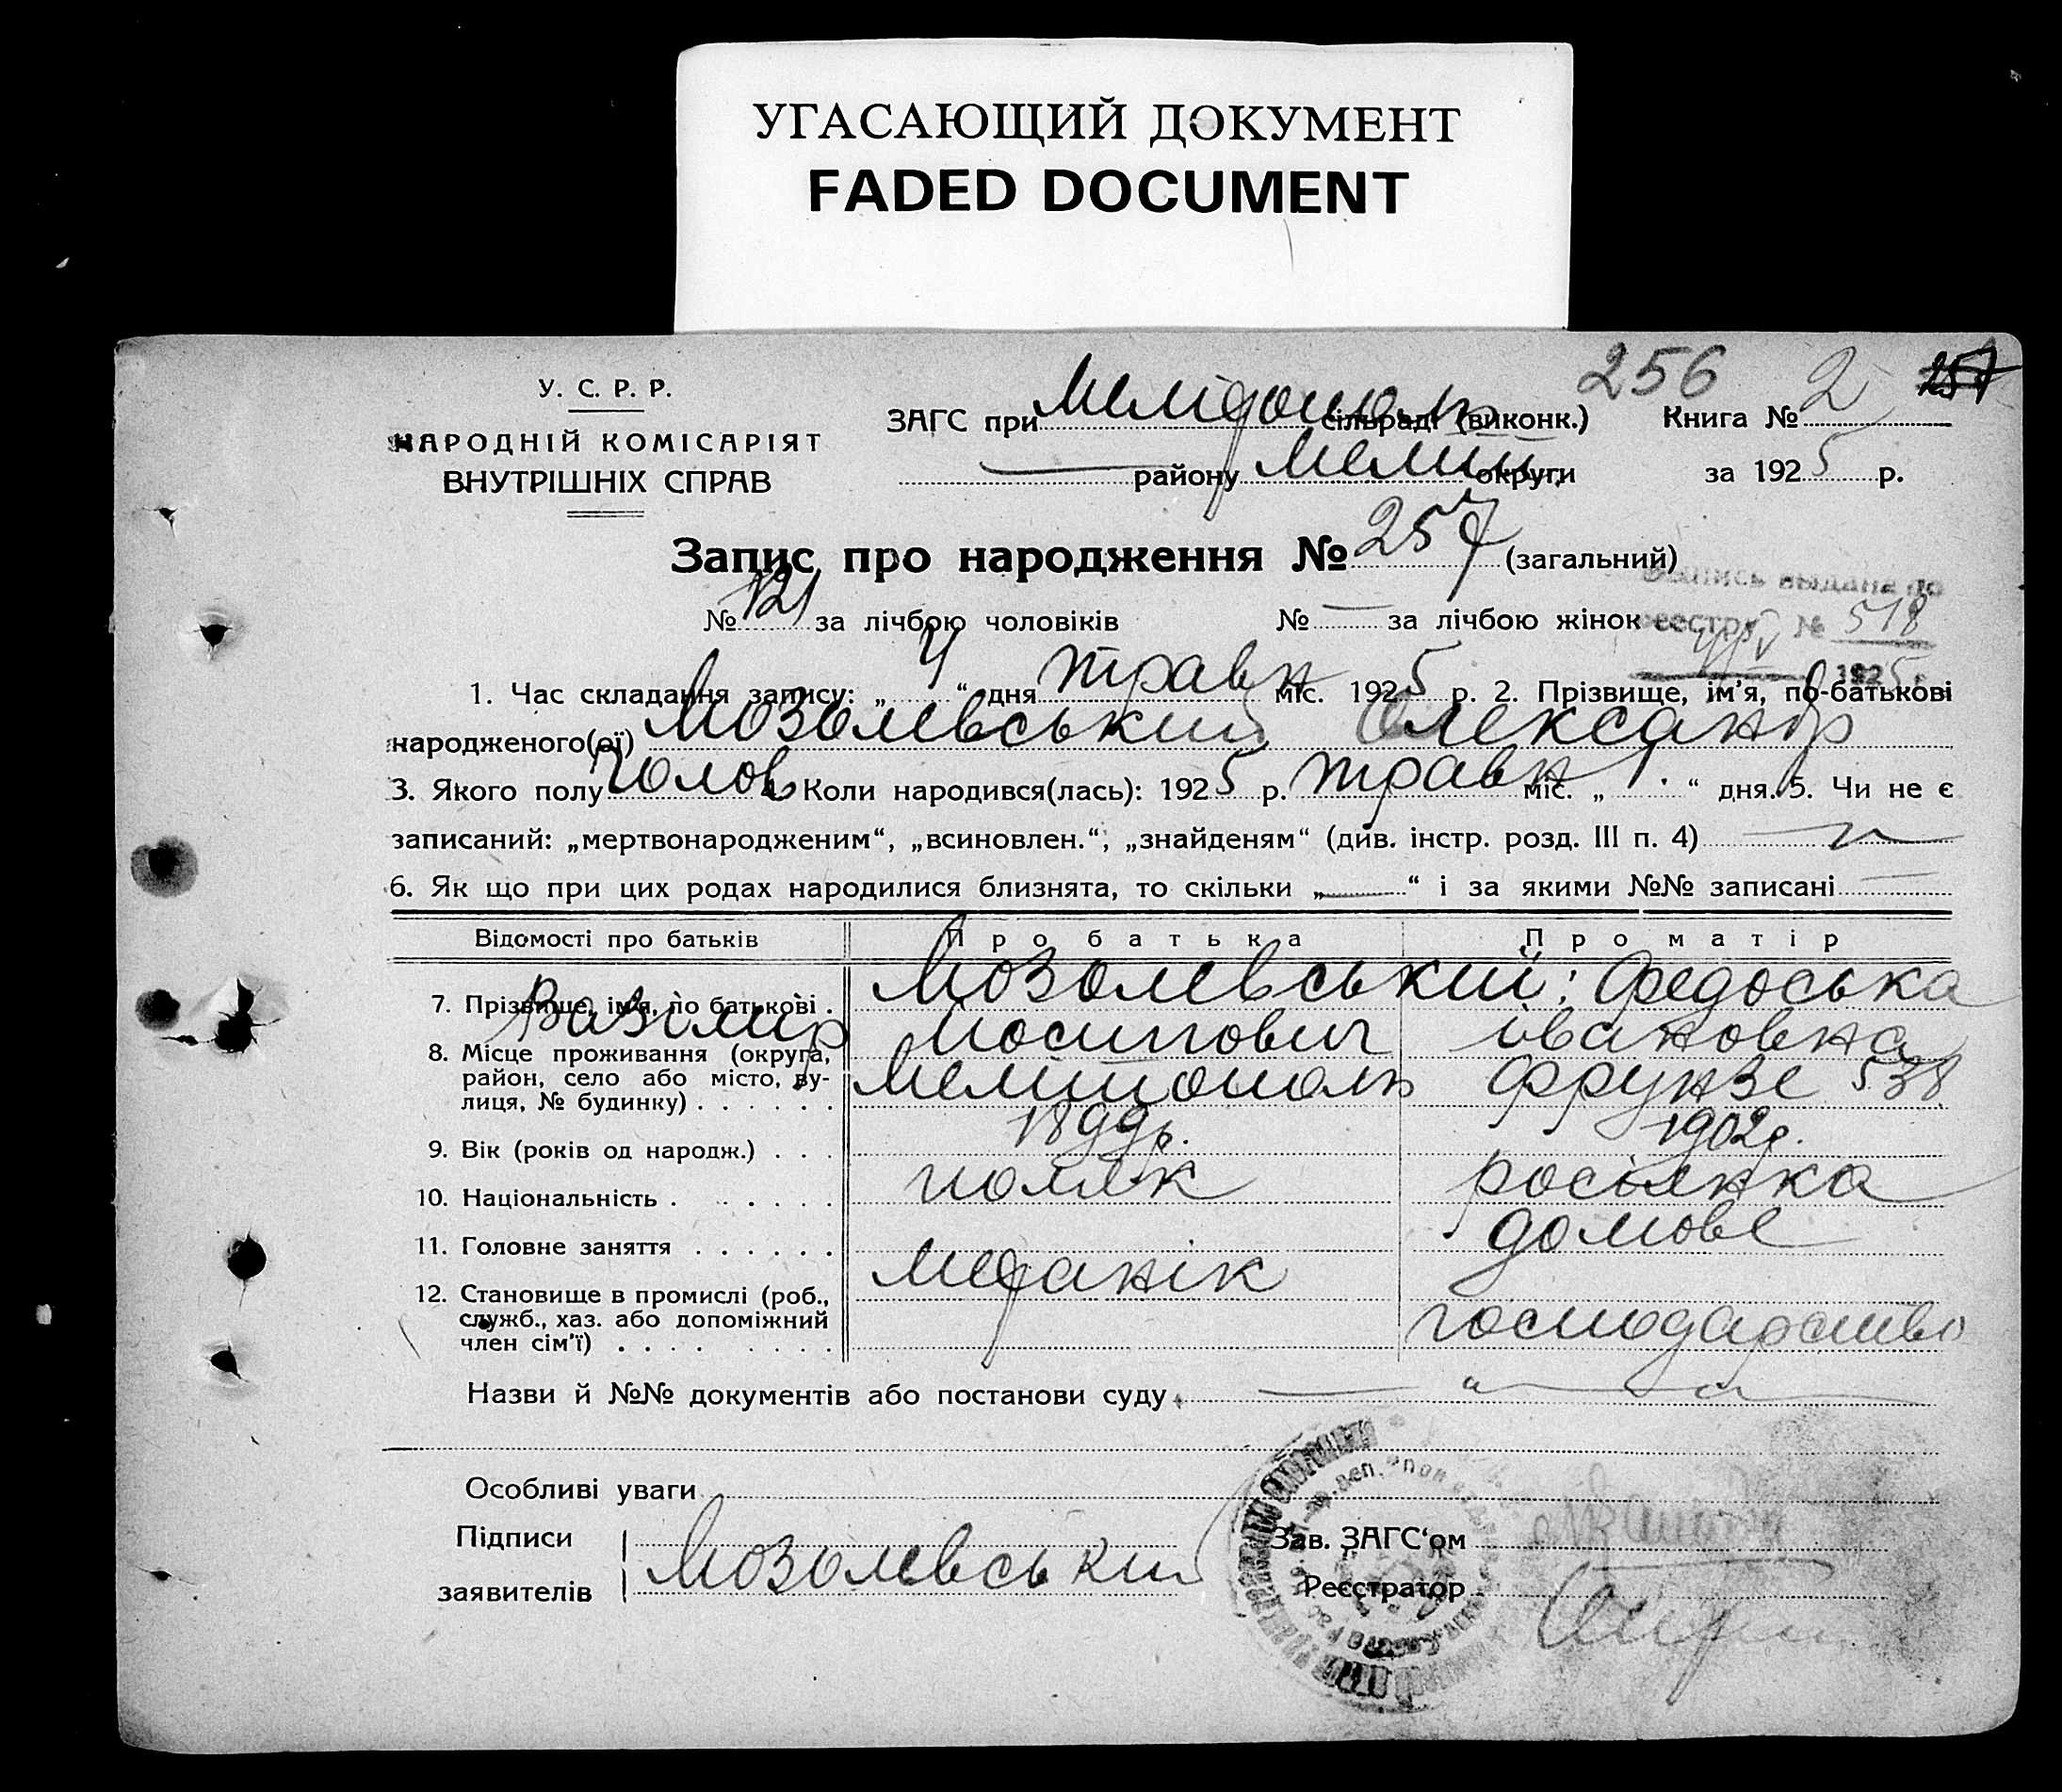 УГАСАЮЩИЙ ДОКУМЕНТ
FADED DOCUMENT
256 2 257
У. С. Р. Р.
НАРОДНІЙ КОМІСАРІЯТ
ВНУТРІШНІХ СПРАВ
ЗАГС при сільраді (виконк.) Книга № 2
району Мелит. округи за 1925 р.
Запис про народження № 257 (загальний)
Выпись выдана по
№ 121 за лічбою чоловіків № — за лічбою жінок
реестру № 518
1925 г.
1. Час складання запису: „ 4 “ дня травн міс. 1925 р. 2. Прізвище, ім'я, по-батькові
народженого(ої) Мозолевський Олександр
3. Якого полу чолов 4. Коли народився(лась): 1925 р. травн міс. „ 1 “ дня. 5. Чи не є
записаний: „мертвонародженим“, „всиновлен.“, „знайденям“ (див. інстр. розд. III п. 4)
6. Як що при цих родах народилися близнята, то скільки „ — “ і за якими №№ записані —
Відомості про батьків Про батька Про матір
7. Прізвище, ім'я, по батькові . Мозолевський: Федоська
Йосипович івановна
8. Місце проживання (округа, район, село або місто, вулиця, № будинку) . . . . . . Мелитополь Фрунзе 538
9. Вік (років од народж.) . . . 1899р. 1902р.
10. Національність . . . . . . поляк росіянка
11. Головне заняття . . . . . . механік домове
12. Становище в промислі (роб., служб., хаз. або допоміжний член сім'ї) . . . . господарство
Назви й №№ документів або постанови суду
Особливі уваги
Підписи
заявителів Мозолевський
Зав. ЗАГС'ом
Реєстратор